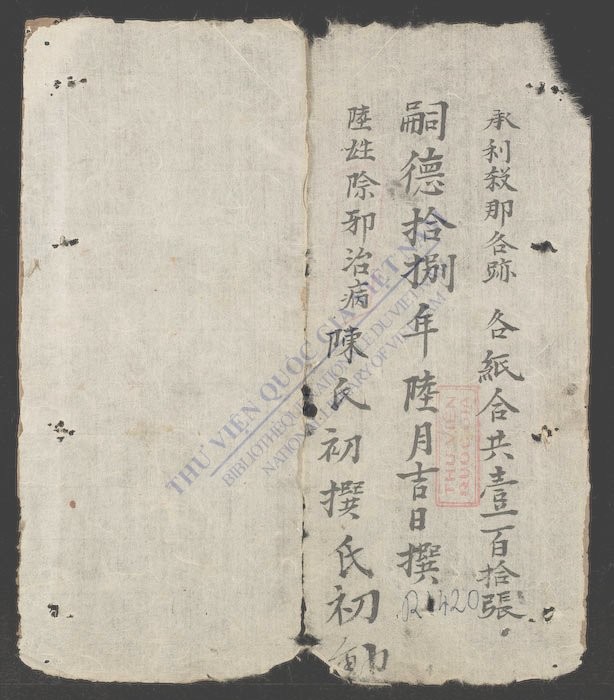 承利殺那各跡 各紙合共壹百拾張
嗣德拾捌年陸月吉日撰
陸姓除邪治病 陳氏初撰氏初
R.1420
THƯ VIỆN QUỐC GIA VIỆT NAM
BIBLIOTHÈQUE NATIONALE DU VIETNAM
NATIONAL LIBRARY OF VIETNAM
THU VIEN
QUOC GIA